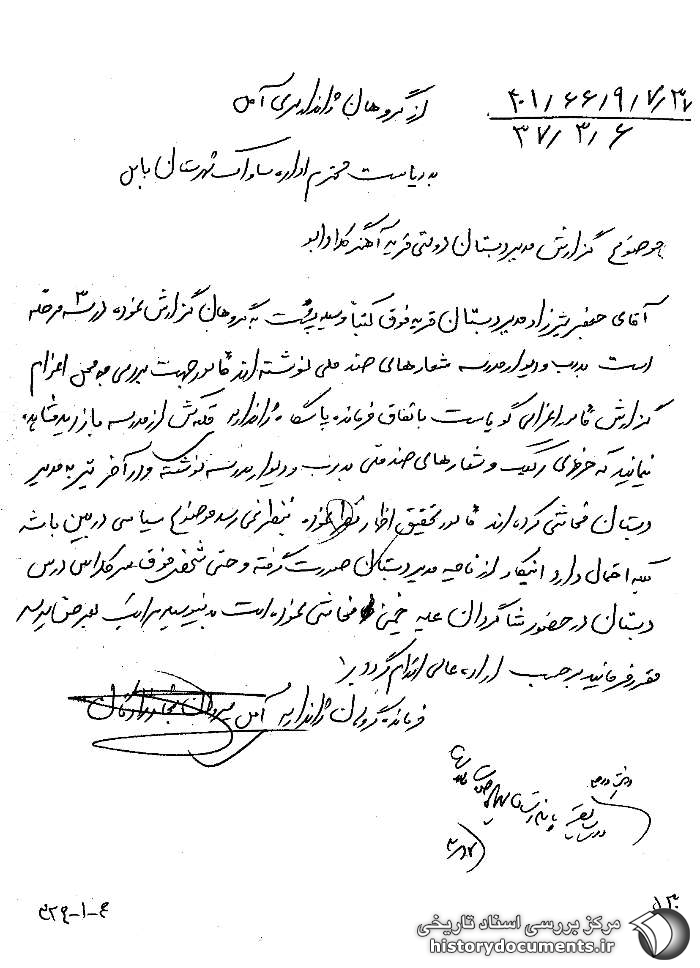 از گروهان ژاندارمری آمل
۴۰۱/۶۶/۹/۷/۳۷
۳۷/۳/۶
به ریاست محترم اداره ساواک شهرستان بابل
موضوع گزارش مدیر دبستان دولتی قریه آهنگر کلا
آقای جعفر شیرزاد مدیر دبستان قریه فوق کتباً وسیله پست به گروهان گزارش نموده در ۳ مرحله
است بدرب و دیوار مدرسه شعارهای ضد ملی نوشته‌اند مامور جهت بررسی به محل اعزام
گزارش مامور اعزامی گویاست باتفاق فرمانده پاسگاه ژاندارمری از مدرسه بازدید مشاهده
مینمایند که حرفهای رکیک و شعارهای ضد ملی بدرب و دیوار مدرسه نوشته و در آخر نیز به مدیر
دبستان فحاشی کرده‌اند مامور تحقیق اظهار نظر نموده بنظر نمی‌رسد موضوع سیاسی در بین باشد
بلکه احتمال دارد اینکار از ناحیه مدیر دبستان صورت گرفته و حتی شخص فوق سر کلاس درس
دبستان در حضور شاگردان علیه خمینی فحاشی نموده است بدینوسیله مراتب بعرض میرسد
مقرر فرمایند برحسب اراده عالی اقدام گردد
فرمانده گروهان ژاندارمری آمل
۱۳۰
۳۲۹-۱-۶
مرکز بررسی اسناد تاریخی
historydocuments.ir